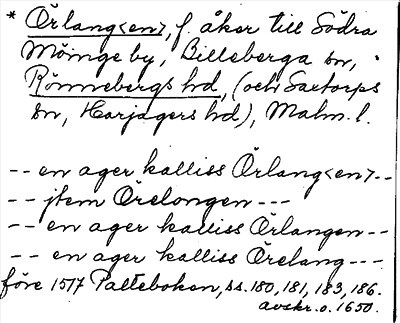 * Örlang<en>, f. åker till Södra
Möinge by, Billeberga sn,
Rönnebergs hd, (och Saxtorps
sn, Harjagers hd), Malm. l.
-- en ager kalliss Örlang<en>--
-- jtem Örelongen ---
-- en ager kalliss Örlangen--
-- en ager kalliss Örelang---
före 1517 Palteboken, ss. 180, 181, 183, 186.
avskr. o. 1650.